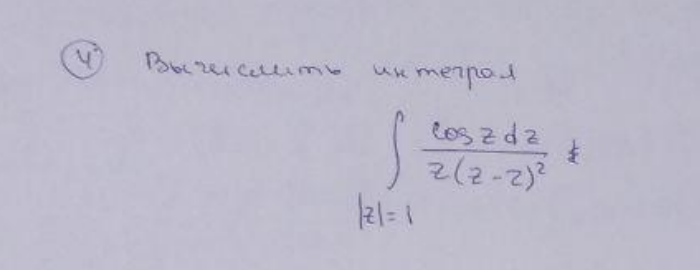 4 Вычислить интеграл
∫ cos z dz / z(z-2)²
|z|=1